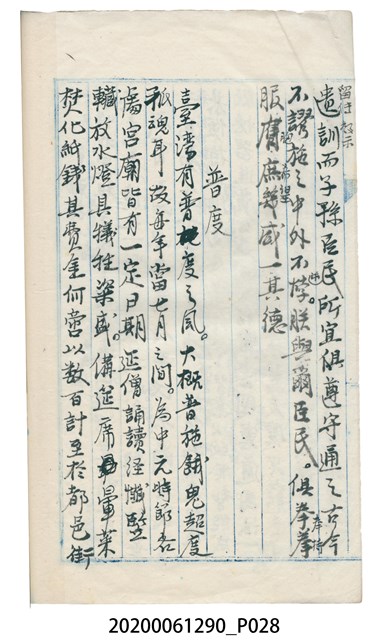 遺訓而子孫臣民所宜俱遵守通之古今
不謬施之中外不悖朕與爾臣民。俱拳拳
服膺庶幾咸一其德
普度
臺灣有普度之風。大概普施餓鬼超度
孤魂耳故每年當七月之間。為中元時節各
處宮廟皆有一定日期延僧誦讀經懺豎
放水燈具犧牲粢盛。備筵席暈菜
焚化紙錢其費金何啻以數百計至於都邑街
20200061290_P028